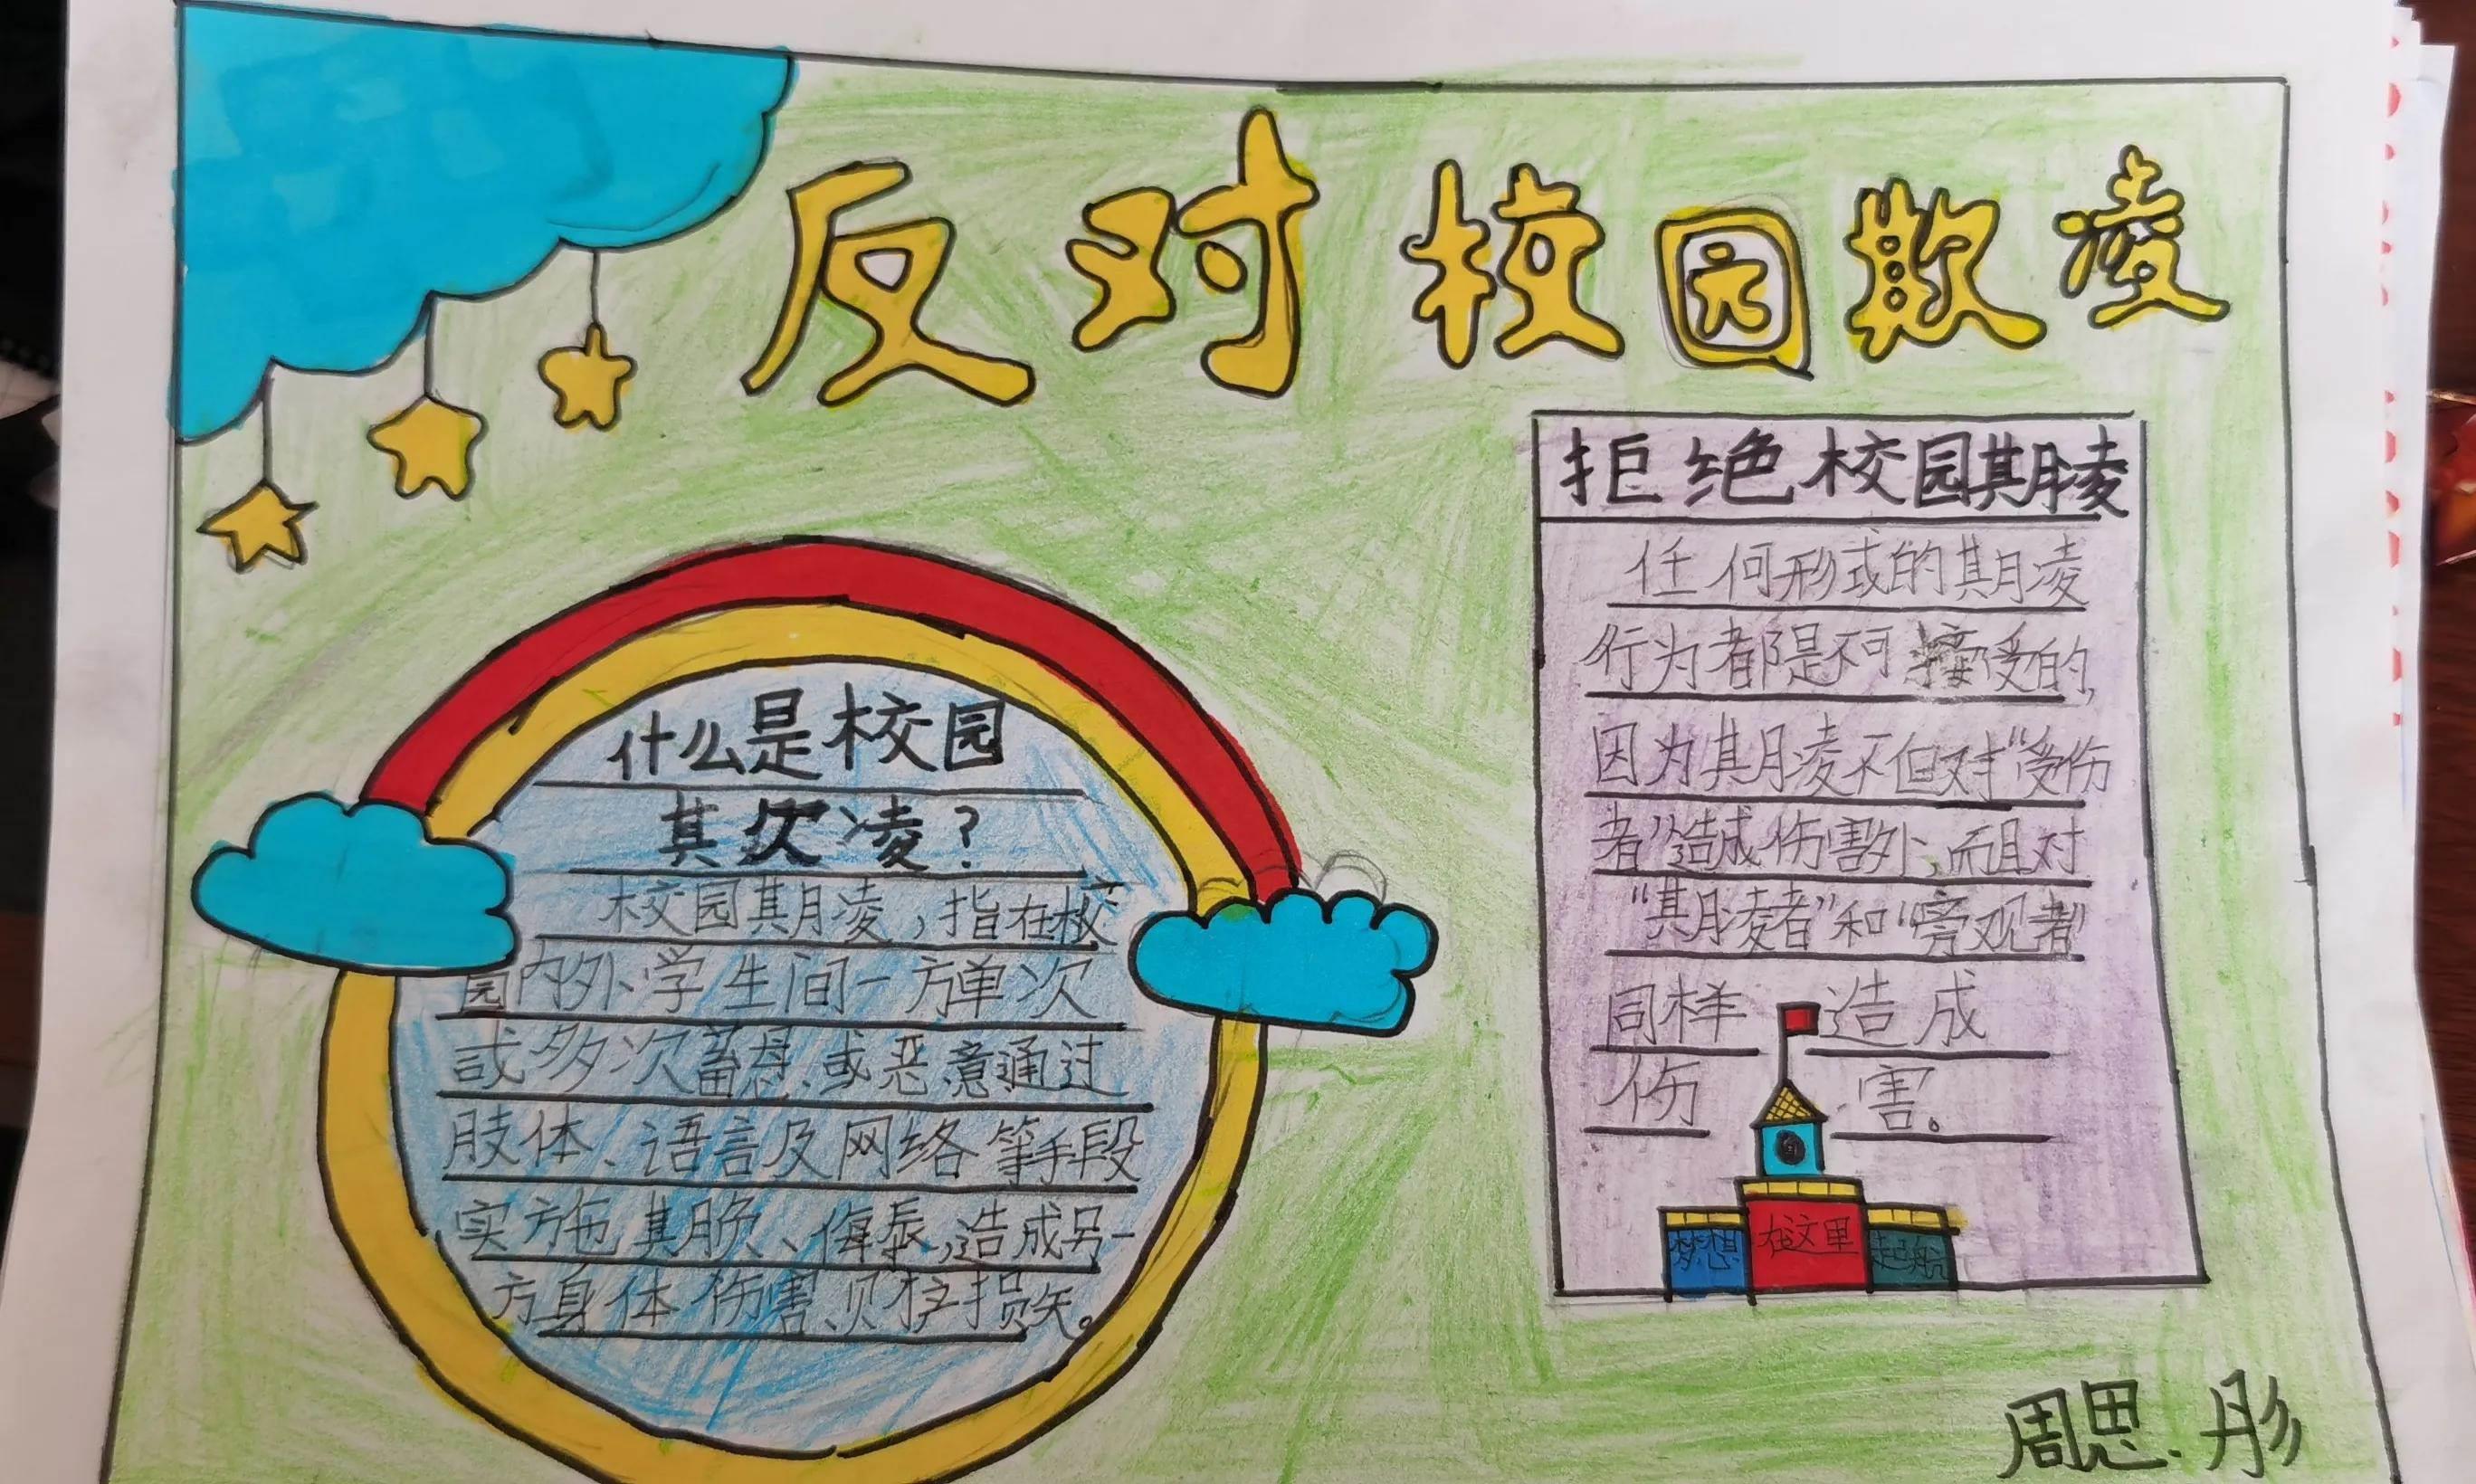 反对校园欺凌
什么是校园
欺凌?
校园期凌,指在校
园内外学生间一方单次
或多次蓄意、或恶意通过
肢体、语言及网络等手段
实施、侮辱,造成另一
方身体伤害、损失。
拒绝校园期凌
任何形式的期凌
行为都是不可接受的,
因为期凌不但对“受伤
者”造成伤害外,而且对
“期凌者”和“旁观者”
同样造成
伤害。
梦想 在这里 起航
周思彤